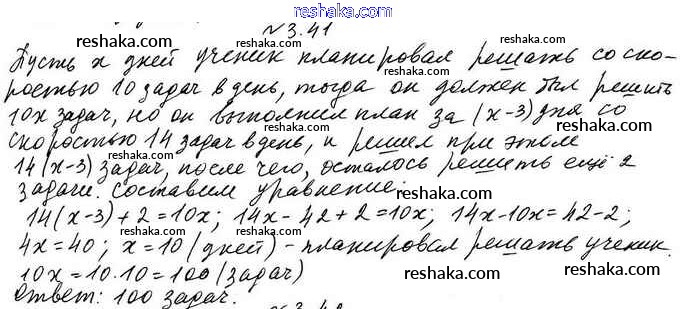 reshak.ru
№3.41
Пусть x дней ученик планировал решать со ско-
ростью 10 задач в день, тогда он должен был решить
10x задач, но он выполнил план за (x-3) дня со
скоростью 14 задач в день, и решил при этом
14(x-3) задач, после чего, осталось решить ещё 2
задачи. Составим уравнение:
14(x-3)+2=10x; 14x-42+2=10x; 14x-10x=42-2;
4x=40; x=10 (дней) - планировал решать ученик.
10x=10·10=100 (задач)
Ответ: 100 задач.